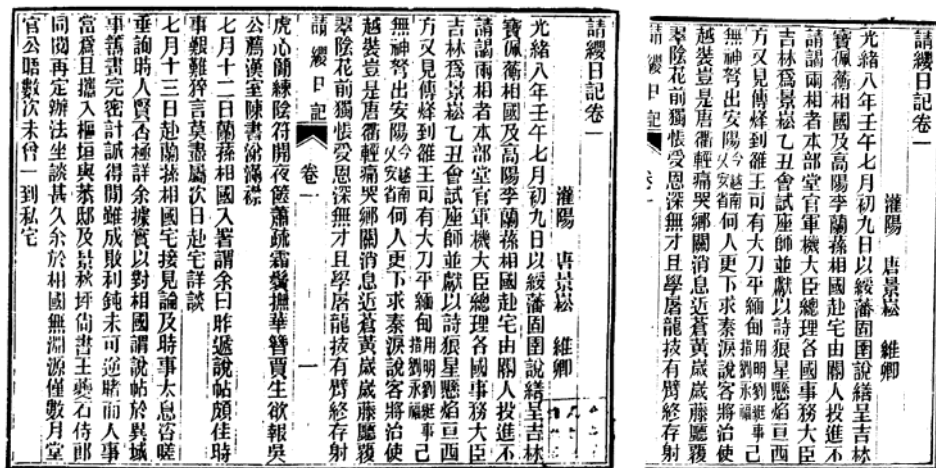 請纓日記卷一
灌陽 唐景崧 維卿
光緒八年壬午七月初九日以綏藩固圉說繕呈吉林
寶佩蘅相國及高陽李蘭蓀相國赴宅由閽人投進不
請謁兩相者本部堂官軍機大臣總理各國事務大臣
吉林爲景崧乙丑會試座師並獻以詩狼星懸焰亘西
方又見傳烽到雒王可有大刀平緬甸用明劉綎事己指劉永福
無神弩出安陽今越南乂安省何人更下求秦淚說客將治使
越裝豈是唐衢輕痛哭鄉關消息近蒼黃嵗嵗藤廳覆
翠陰花前獨悵受恩深無才且學屠龍技有臂終存射
請纓日記 卷一 一
虎心簡練陰符開夜篋蕭疏霜鬢撫華簪賈生欲報吳
公薦漢室陳書淚滿襟
七月十二日蘭蓀相國入署謂余曰昨遞說帖頗佳時
事艱難猝言莫盡屬次日赴宅詳談
七月十三日赴蘭蓀相國宅接見論及時事太息咨嗟
垂詢時人賢否極詳余據實以對相國謂說帖於異域
事籌畫完密計誠得間雖成敗利鈍未可逆睹而人事
當爲且攜入樞垣與恭邸及景秋坪尚書王夔石侍郎
同閱再定辦法坐談甚久余於相國無淵源僅數月堂
官公晤數次未曾一到私宅
請纓日記卷一
灌陽 唐景崧 維卿
光緒八年壬午七月初九日以綏藩固圉說繕呈吉林
寶佩蘅相國及高陽李蘭蓀相國赴宅由閽人投進不
請謁兩相者本部堂官軍機大臣總理各國事務大臣
吉林爲景崧乙丑會試座師並獻以詩狼星懸焰亘西
方又見傳烽到雒王可有大刀平緬甸用明劉綎事己指劉永福
無神弩出安陽今越南乂安省何人更下求秦淚說客將治使
越裝豈是唐衢輕痛哭鄉關消息近蒼黃嵗嵗藤廳覆
翠陰花前獨悵受恩深無才且學屠龍技有臂終存射
請纓日記